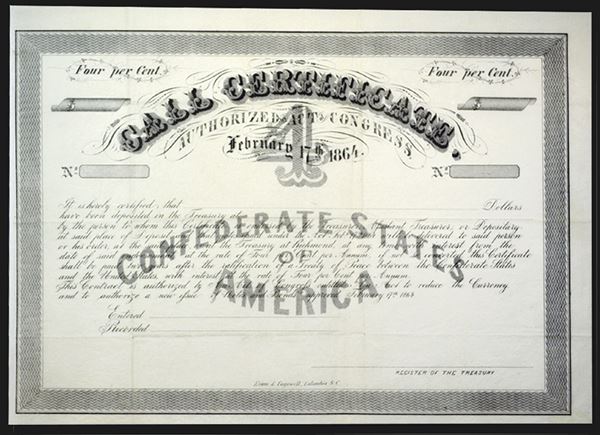 Four per Cent. Four per Cent.
CALL CERTIFICATE.
AUTHORIZED ACT OF CONGRESS.
4
February 17th 1864.
No. No.
It is hereby certified that Dollars
have been deposited in the Treasury at
by the person to whom this
at said place of to said person
or his order, at the the Treasury at Richmond, at any time with interest from the
date of said at the rate of Four per Annum, if not this Certificate
shall be paid after the ratification of a Treaty of Peace between the Confederate States
and the United States, with interest at the rate of Four per Cent per Annum.
This Contract is authorized by to reduce the Currency
and to authorize a new issue of Notes and Bonds approved February 17th 1864
CONFEDERATE STATES
OF
AMERICA
Entered
Recorded
REGISTER OF THE TREASURY
Evans & Cogswell, Columbia S.C.